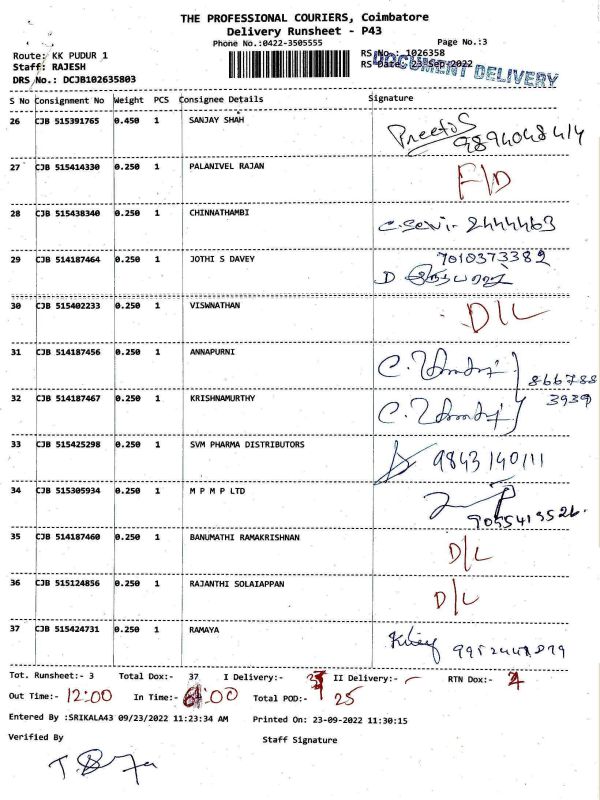 THE PROFESSIONAL COURIERS, Coimbatore
Delivery Runsheet - P43
Phone No.:0422-3505555
Page No.:3
Route: KK PUDUR 1
RS No.: 1026358
Staff: RAJESH
RS Date: 23-Sep-2022
DOCUMENT DELIVERY
DRS No.: DCJB102635803
S No Consignment No Weight PCS Consignee Details Signature
26 CJB 515391765 0.450 1 SANJAY SHAH
9894048414
27 CJB 515414330 0.250 1 PALANIVEL RAJAN F/D
28 CJB 515438340 0.250 1 CHINNATHAMBI 2444463
29 CJB 514187464 0.250 1 JOTHI S DAVEY 7010373382
D
30 CJB 515402233 0.250 1 VISWNATHAN D/L
31 CJB 514187456 0.250 1 ANNAPURNI
866788
3939
32 CJB 514187467 0.250 1 KRISHNAMURTHY
33 CJB 515425298 0.250 1 SVM PHARMA DISTRIBUTORS 9843140111
34 CJB 515305934 0.250 1 M P M P LTD
35 CJB 514187460 0.250 1 BANUMATHI RAMAKRISHNAN D/L
36 CJB 515124856 0.250 1 RAJANTHI SOLAIAPPAN D/L
37 CJB 515424731 0.250 1 RAMAYA
Tot. Runsheet:- 3 Total Dox:- 37 I Delivery:- II Delivery:- RTN Dox:-
Out Time:- 12:00 In Time:- Total POD:- 25
Entered By :SRIKALA43 09/23/2022 11:23:34 AM Printed On: 23-09-2022 11:30:15
Verified By Staff Signature